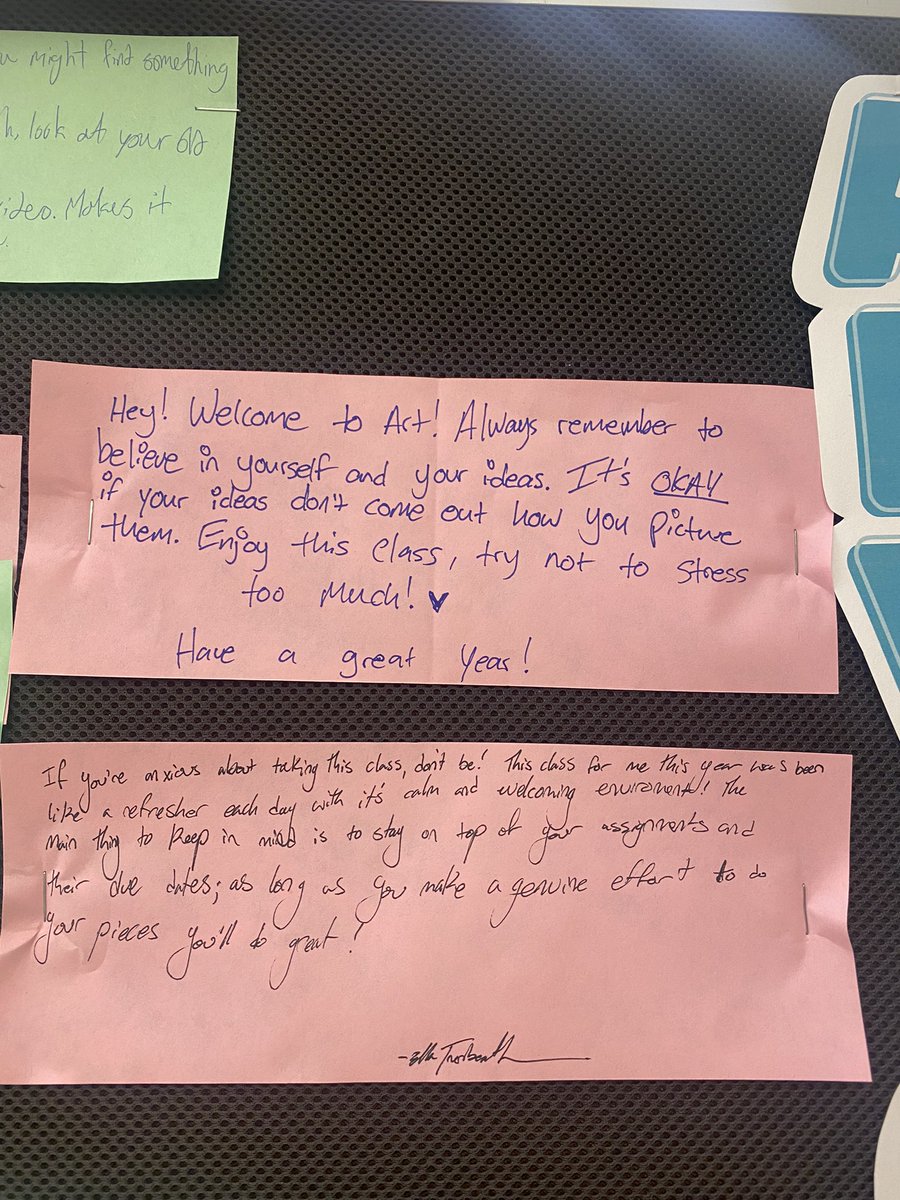 might find something
look at your
video. Makes it
Hey! Welcome to Art! Always remember to
believe in yourself and your ideas. It's OKAY
if your ideas don't come out how you picture
them. Enjoy this class, try not to stress
too much!
Have a great year!
If you're anxious about taking this class, don't be! This class for me this year was been
like a refresher each day with it's calm and welcoming enviroment! The
main thing to keep in mind is to stay on top of your assignments and
their due dates; as long as you make a genuine effort to do
your pieces you'll do great!
-Ella